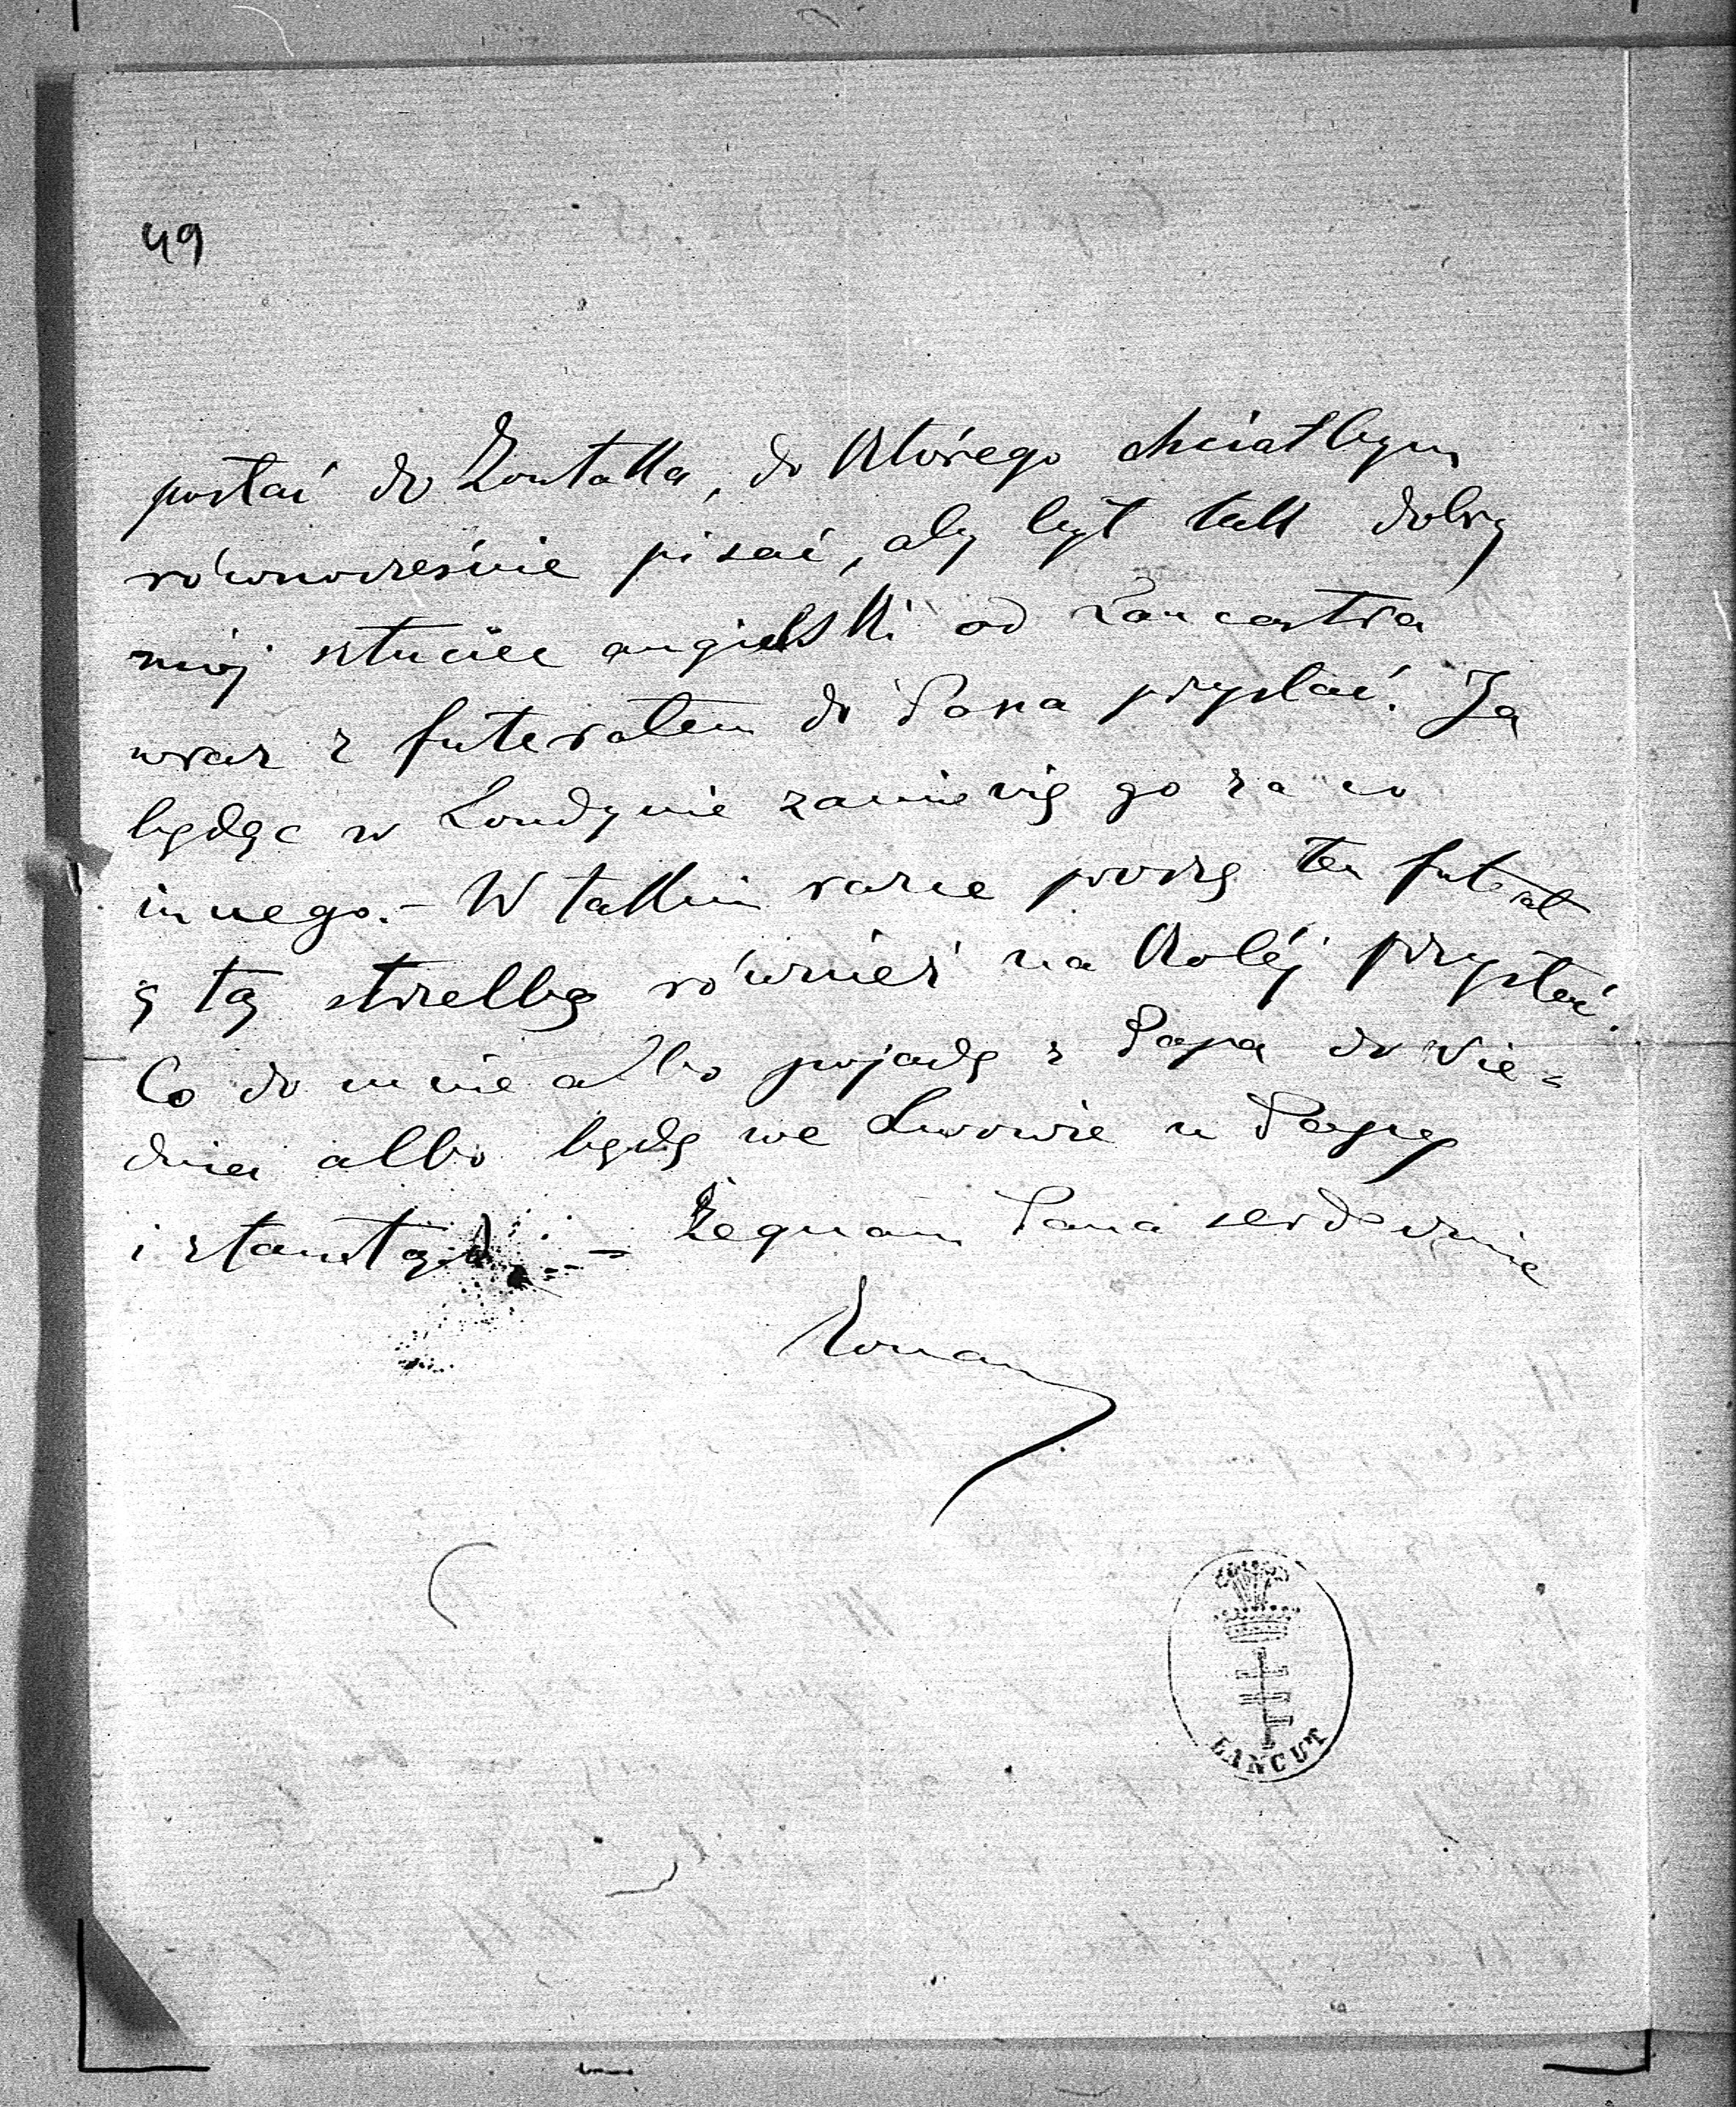 49
posłać do Zontaka, do którego chciałbym
równocześnie pisać, aby był tak dobry
mój sztuciec angielski od Lancastra
wraz z futerałem do Pana przysłać. Ja
będąc w Londynie zamienię go za co
innego. – W takim razie proszę ten futerał
z tą strzelbą również na kolej przysłać.
Co do mnie albo pojadę z Papą do Wie=
dnia albo będę we Lwowie u Papy
i ztamtąd – Żegnam Pana serdecznie
Roman
ŁAŃCUT